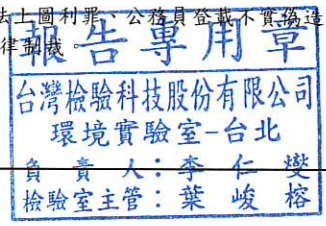 法上圖利罪、公務員登載不實偽造
律制裁。
報告專用章
台灣檢驗科技股份有限公司
環境實驗室-台北
負責人：李仁燮
檢驗室主管：葉峻榕